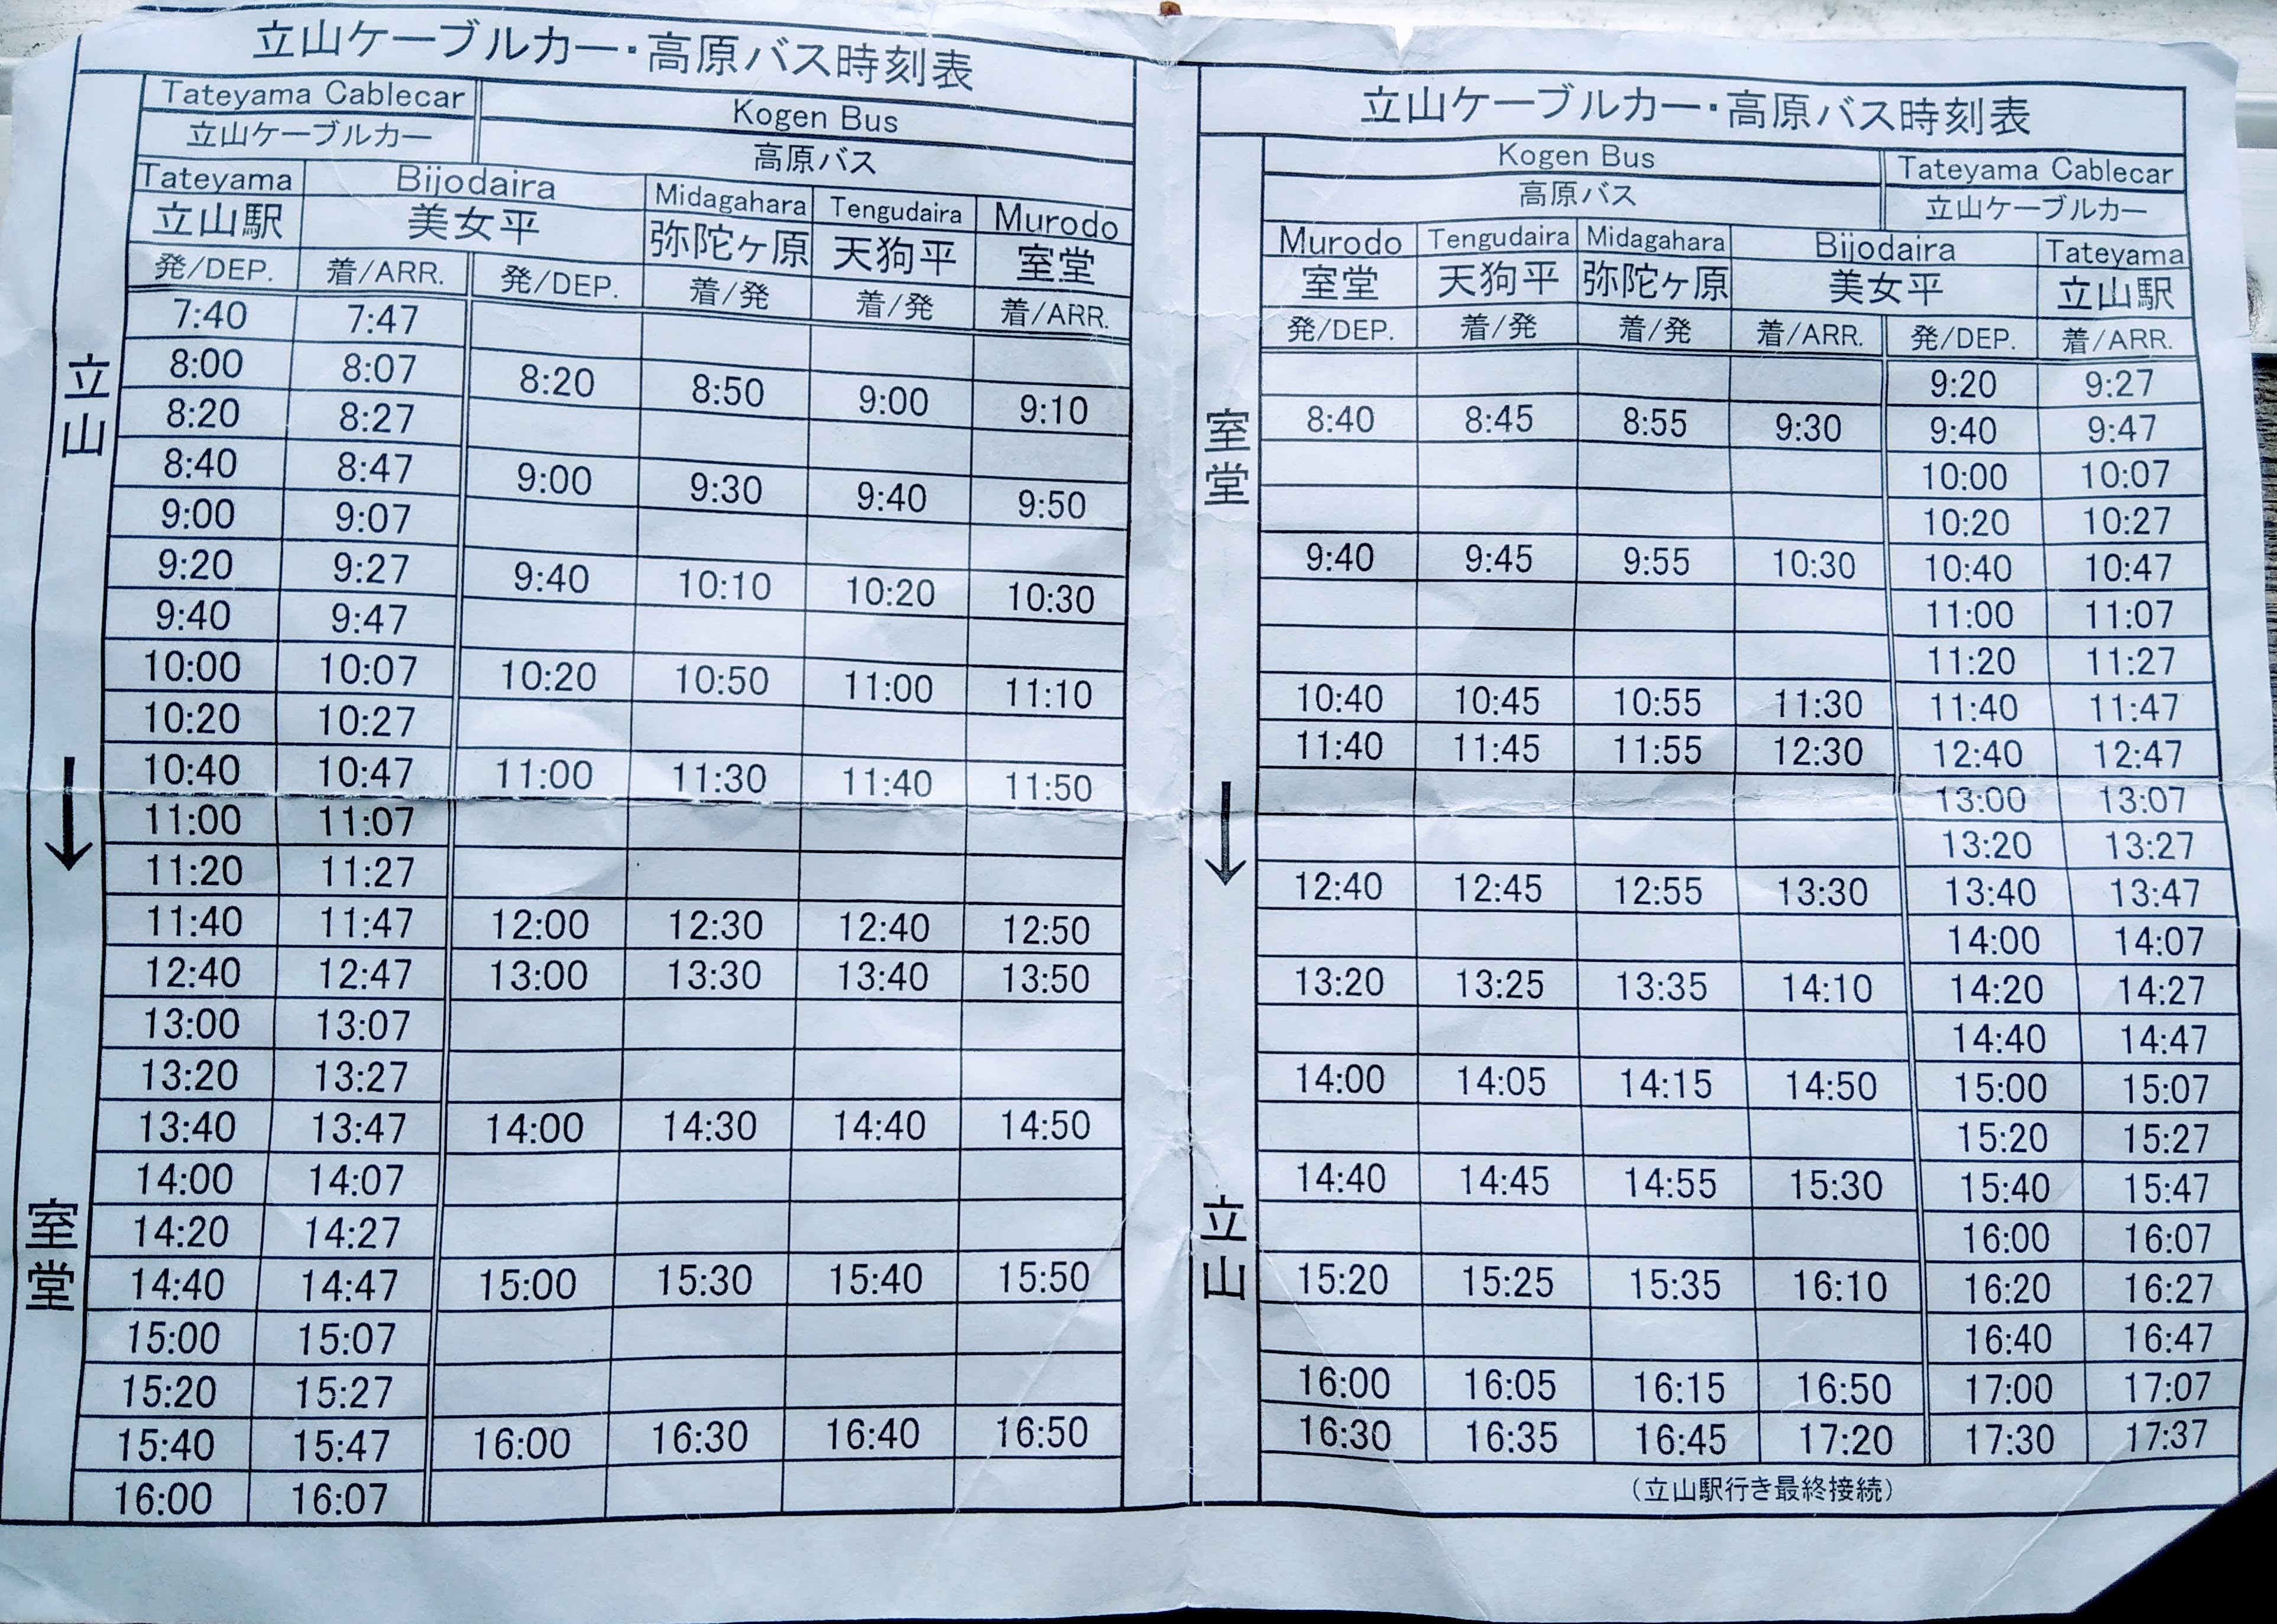 立山ケーブルカー・高原バス時刻表
Tateyama Cablecar Kogen Bus
立山ケーブルカー 高原バス
Tateyama Bijodaira Midagahara Tengudaira Murodo
立山駅 美女平 弥陀ヶ原 天狗平 室堂
発/DEP. 着/ARR. 発/DEP. 着/発 着/発 着/ARR.
7:40 7:47
8:00 8:07 8:20 8:50 9:00 9:10
8:20 8:27
8:40 8:47 9:00 9:30 9:40 9:50
9:00 9:07
9:20 9:27 9:40 10:10 10:20 10:30
9:40 9:47
10:00 10:07 10:20 10:50 11:00 11:10
10:20 10:27
10:40 10:47 11:00 11:30 11:40 11:50
11:00 11:07
11:20 11:27
11:40 11:47 12:00 12:30 12:40 12:50
12:40 12:47 13:00 13:30 13:40 13:50
13:00 13:07
13:20 13:27
13:40 13:47 14:00 14:30 14:40 14:50
14:00 14:07
14:20 14:27
14:40 14:47 15:00 15:30 15:40 15:50
15:00 15:07
15:20 15:27
15:40 15:47 16:00 16:30 16:40 16:50
16:00 16:07
立山
↓
室堂
立山ケーブルカー・高原バス時刻表
Kogen Bus Tateyama Cablecar
高原バス 立山ケーブルカー
Murodo Tengudaira Midagahara Bijodaira Tateyama
室堂 天狗平 弥陀ヶ原 美女平 立山駅
発/DEP. 着/発 着/発 着/ARR. 発/DEP. 着/ARR.
9:20 9:27
8:40 8:45 8:55 9:30 9:40 9:47
10:00 10:07
10:20 10:27
9:40 9:45 9:55 10:30 10:40 10:47
11:00 11:07
11:20 11:27
10:40 10:45 10:55 11:30 11:40 11:47
11:40 11:45 11:55 12:30 12:40 12:47
13:00 13:07
13:20 13:27
12:40 12:45 12:55 13:30 13:40 13:47
14:00 14:07
13:20 13:25 13:35 14:10 14:20 14:27
14:40 14:47
14:00 14:05 14:15 14:50 15:00 15:07
15:20 15:27
14:40 14:45 14:55 15:30 15:40 15:47
16:00 16:07
15:20 15:25 15:35 16:10 16:20 16:27
16:40 16:47
16:00 16:05 16:15 16:50 17:00 17:07
16:30 16:35 16:45 17:20 17:30 17:37
(立山駅行き最終接続)
室堂
↓
立山